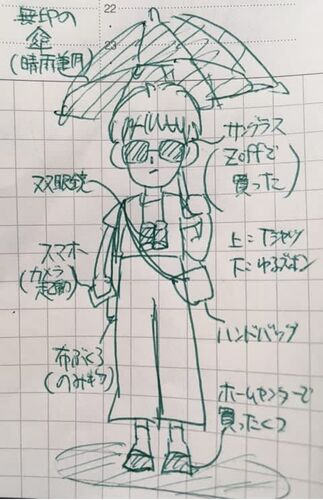 22
23
無印の
傘
(晴雨兼用)
サングラス
(Zoffで
買った)
双眼鏡
上：Tシャツ
下：ゆるズボン
スマホ
(カメラ
起動)
ハンドバッグ
布ぶくろ
(のみもの)
ホームセンターで
買ったくつ